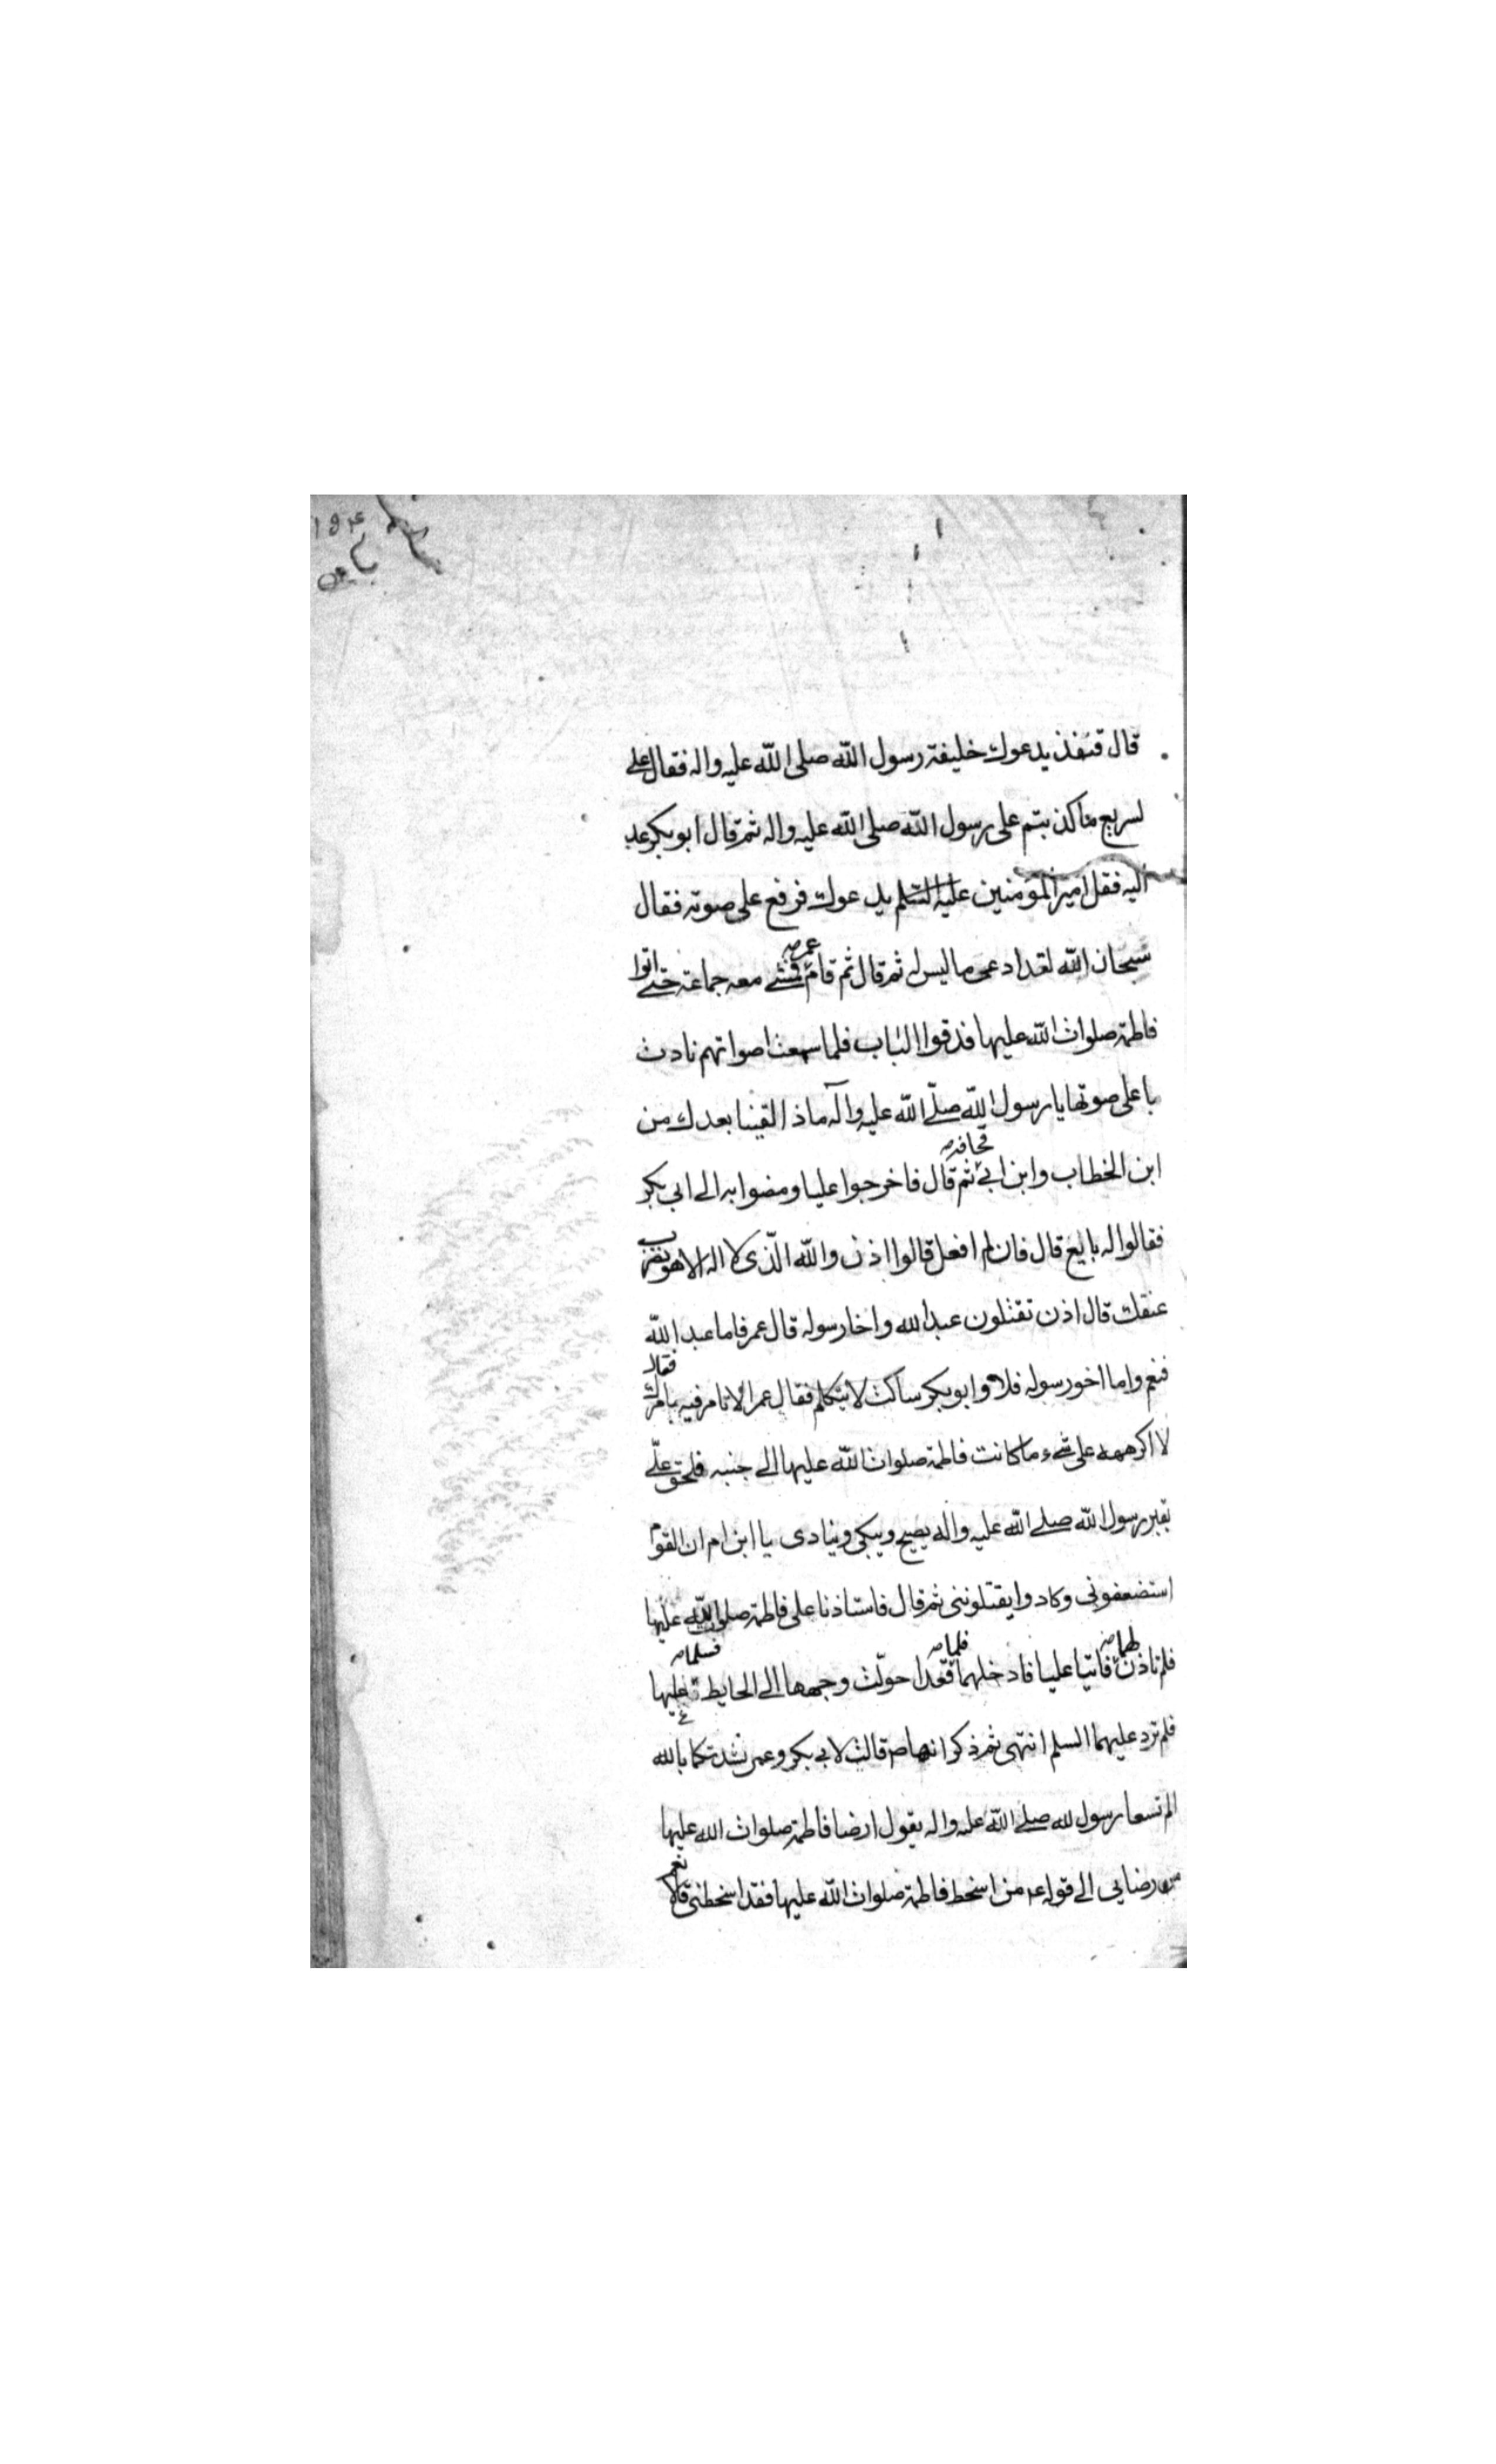 قال قنفذ يدعوك خليفة رسول الله صلى الله عليه واله فقال علي
لسريع ما كذبتم على رسول الله صلى الله عليه واله ثم قال ابو بكر عد
اليه فقل امير المؤمنين عليه السلم يدعوك فرفع علي صوته فقال
سبحان الله لقد ادعى ما ليس له ثم قال ثم قام عمر فمشى معه جماعة حتى اتوا
فاطمة صلوات الله عليها فدقوا الباب فلما سمعت اصواتهم نادت
باعلى صوتها يا رسول الله صلى الله عليه وآله ماذا لقينا بعدك من
ابن الخطاب وابن ابي قحافة ثم قال فاخرجوا عليا ومضوا به الى ابي بكر
فقالوا له بايع قال فان لم افعل قالوا اذن والله الذى لا اله الا هو نضرب
عنقك قال اذن تقتلون عبد الله واخا رسوله قال عمر فاما عبد الله
فنعم واما اخو رسوله فلا وابو بكر ساكت لا يتكلم فقال عمر الا تامر فيه بامرك فقال
لا اكرهه على شىء ما كانت فاطمة صلوات الله عليها الى جنبه فلحق علي
بقبر رسول الله صلى الله عليه واله يصيح ويبكي وينادى يا ابن ام ان القوم
استضعفوني وكادوا يقتلونني ثم قال فاستاذنا على فاطمة صلوات الله عليها
فلم تاذن لهما فاتيا عليا فادخلهما فلما قعدا حولت وجهها الى الحايط فسلما عليها
فلم ترد عليهما السلم انتهى ثم ذكر انها قالت لابي بكر وعمر نشدتكما بالله
الم تسمعا رسول الله صلى الله عليه واله يقول ارضا فاطمة صلوات الله عليها
من رضايي الى قوله من اسخط فاطمة صلوات الله عليها فقد اسخطني قالا نعم